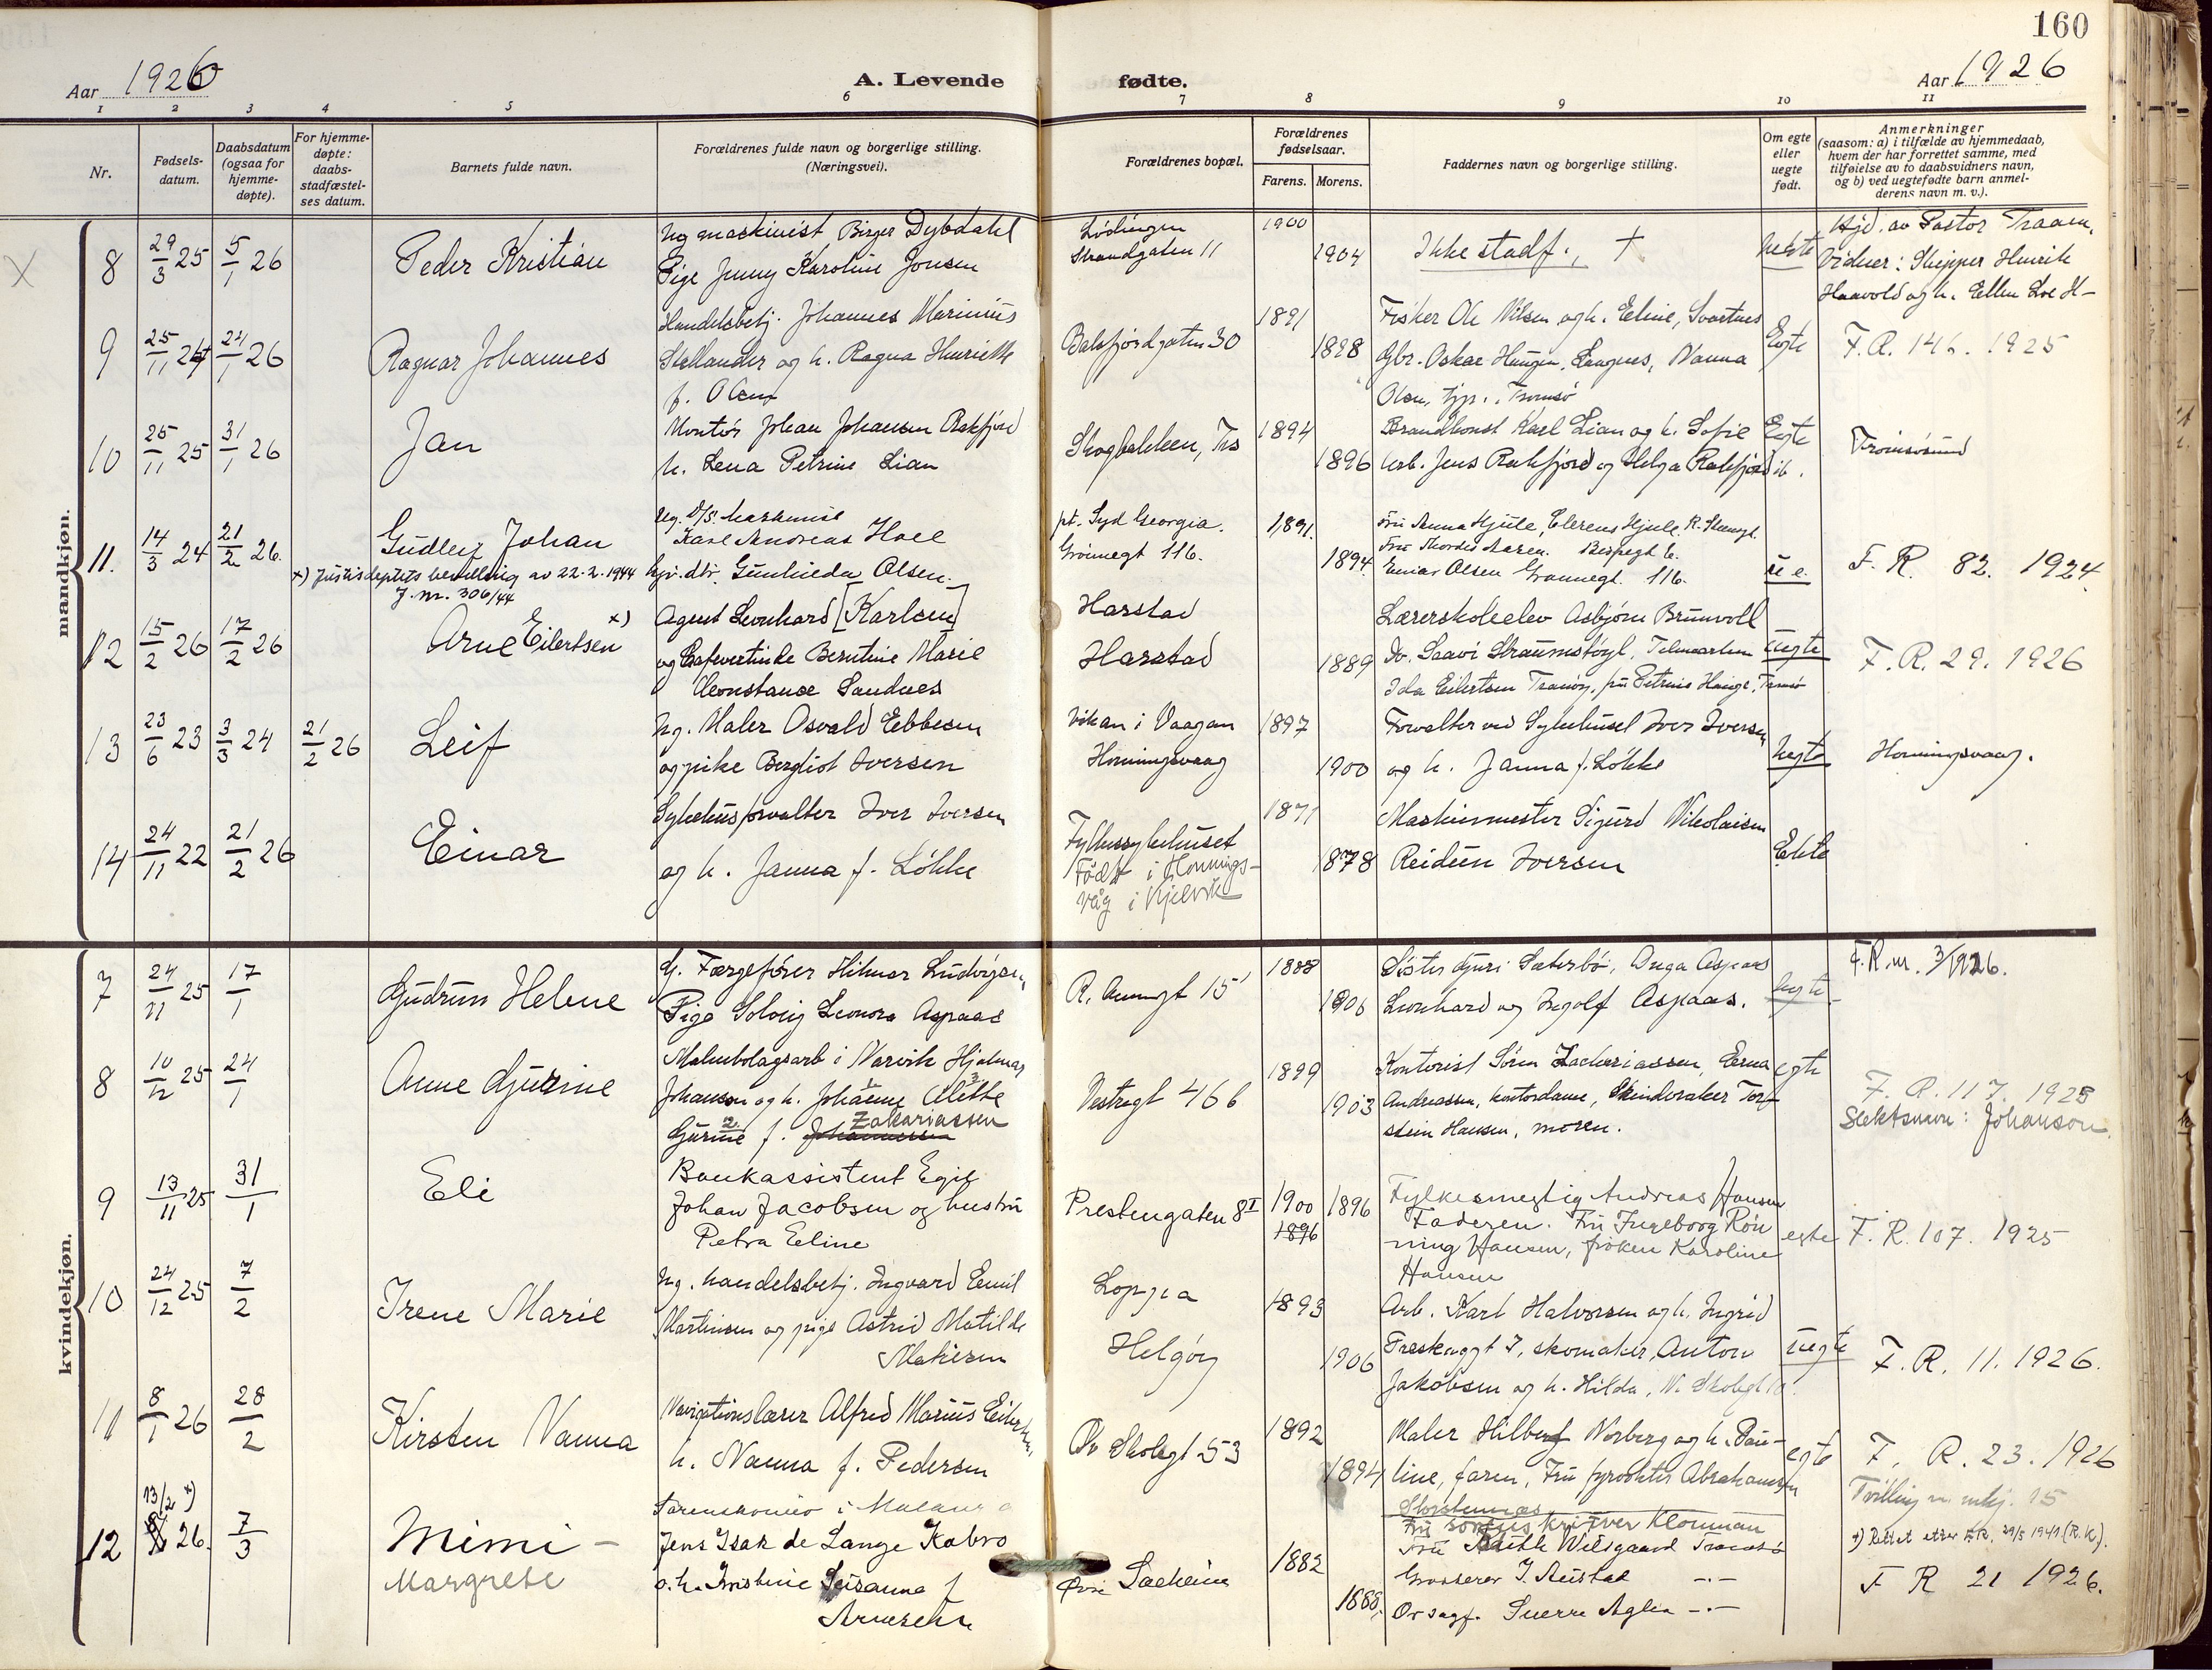 160
Aar 1926
A. Levende fødte.
Aar 1926
1 2 3 4 5 6 7 8 9 10 11
Nr.
Fødsels-
datum.
Daabsdatum
(ogsaa for
hjemme-
døpte).
For hjemme-
døpte:
daabs-
stadfæstel-
ses datum.
Barnets fulde navn.
Forældrenes fulde navn og borgerlige stilling.
(Næringsvei).
Forældrenes bopæl.
Forældrenes
fødselsaar.
Farens. Morens.
Faddernes navn og borgerlige stilling.
Om egte
eller
uegte
født.
Anmerkninger
(saasom: a) i tilfælde av hjemmedaab,
hvem der har forrettet samme, med
tilføielse av to daabsvidners navn,
og b) ved uegtefødte barn anmel-
derens navn m. v.).
mandkjøn.
X
8 29/3 25 5/1 26 Peder Kristian
Ug maskinist Birger Dybdahl
Pige Jenny Karoline Jonsen
Lødingen
Strandgaten 11
1900 1904
Ikke stadf., †
uekte
Hjd. av Pastor Traaen,
Vidner: Skipper Henrik
Haavold og h. Ellen Lve H-
9 25/11 24 24/1 26 Ragnar Johannes
Handelsbetj. Johannes Marinius
Stellander og h. Ragna Henriette
f. Olsen
Balsfjordgaten 30
1891 1898
Fisker Ole Nilsen og h. Eline, Svartnes
Gbr. Oskar Haugen, Laagnes, Nanna
Olsen, tjp., Tromsø
Egte
F.R. 146. 1925
10 25/11 25 31/1 26 Jan
Montør Johan Johansen Rakfjord
h. Lena Petrine Lian
Skogbakken, Trs
1894 1896
Brandkonst Karl Lian og h. Sofie
Arb. Jens Rakfjord og Helga Rakfjord ib.
Egte
Tromsøsund
11. 14/3 24 21/2 26. Gudleif Johan
Ug. D/S. maskinist
Karl Andreas Hoel
hjv. dtr. Gunhilda Olsen.
pt. Syd Georgia.
Grønnegt 116.
1891. 1894.
Fru Anna Hjule, Clerens Hjule, R.
Fru Thordis Aasen. Bispegt 6.
Einar Olsen Grønnegt. 116.
u e.
F. R. 82. 1924.
x) Justisdeptets bevilling av 22-2-1944
J. nr. 306/44
12 15/2 26 17/2 26 Arne Eilertsen x)
Agent Leonhard [Karlsen]
og Kafevertinde Berntine Marie
Konstanse Sandnes
Harstad
Harstad
1889
Lærerskoleelev Asbjørn Brunvoll
Do. Saavi Straumstoyl, Telemarken
Ida Eilertsen Tranøy, fru Petrine Hauge, Tromsø
Uegte
F.R. 29. 1926
13 23/6 23 3/3 24 21/2 26 Leif
Ug. Maler Osvald Ebbesen
og pike Bergliot Iversen
Vikan i Vaagan
Honningsvaag
1897 1900
Forvalter ved Sykehuset Iver Iversen
og h. Janna f. Løkke
Uegte
Honningsvaag.
14 24/11 22 21/2 26 Einar
Sykehusforvalter Iver Iversen
og h. Janna f. Løkke
Fylkessykehuset
Født i Honnings-
våg i Kjelvik
1871 1878
Maskinmester Sigurd Nikolaisen
Reidun Iversen
Ekte
kvindekjøn.
7 24/11 25 17/1 Gudrun Helene
G. Færgefører Hilmar Ludvigsen,
Pige Solveig Leonora Aspaas
R. Amundgt 15
1888 1906
Søster Guri Sæterbø, Inga Aspaas
Leonhard og Ingolf Aspaas.
Uegte
F.R. nr. 3/1926.
8 10/12 25 24/1 Anne Gjurine
Malmbolagsarb i Narvik Hjalmar
Johanson og h. Johanne Alette
Gurine f. Johannessen Zakariassen
Vestregt 46 b
1899 1903
Kontorist Søren Zachariassen, Erna
Andreassen, kontordame, Skindvaker Torf
stein Hansen, moren.
egte
F. R. 117. 1925
Slektsnavn: Johanson.
9 13/11 25 31/1 Eli
Bankassistent Egil
Johan Jacobsen og hustru
Petra Eline
Prestengaten 8 I
1900 1896 1896
Fylkesmegtig Andreas Hansen
Faderen. Fru Ingeborg Røn
ning Hansen, frøken Karoline
Hansen
egte
F. R. 107. 1925
10 24/12 25 7/2 Irene Marie
Ug. handelsbetj. Ingvard Emil
Martinsen og pige Astrid Matilde
Mathisen
Loppa
Helgøy
1893 1906
Arb. Karl Halvorsen og h. Ingrid
Freskeggt 7, skomaker, Anton
Jakobsen og h. Hilda, N. Skolegt 10.
uegte
F. R. 11. 1926.
11 8/1 26 28/2 Kirsten Nanna
Navigationslærer Alfred Marius Eilertsen,
h. Nanna f. Pedersen
Øv Skolegt 53
1892 1894
Maler Hilberg Norberg og h. Pau-
line, faren, Fru Abrahamsen
egte
F. R. 23. 1926
12 13/2 x) 26. 7/3 Mimi -
Margrete
i Malang
Jens Isak de Lange Kobro
o. h. Kristine Susanna f
Arnesen
Øvre
1882 1888.
Storstennes
Fru Klouman
Fru Wilsgaard Tromsø
Grosserer J. Austad -.-
Or sagf. Sverre Aglen -.-
Tvilling m. mkj. 15
x) Rettet etter F.R. 29/5 1941 (R.K).
F R 21 1926.